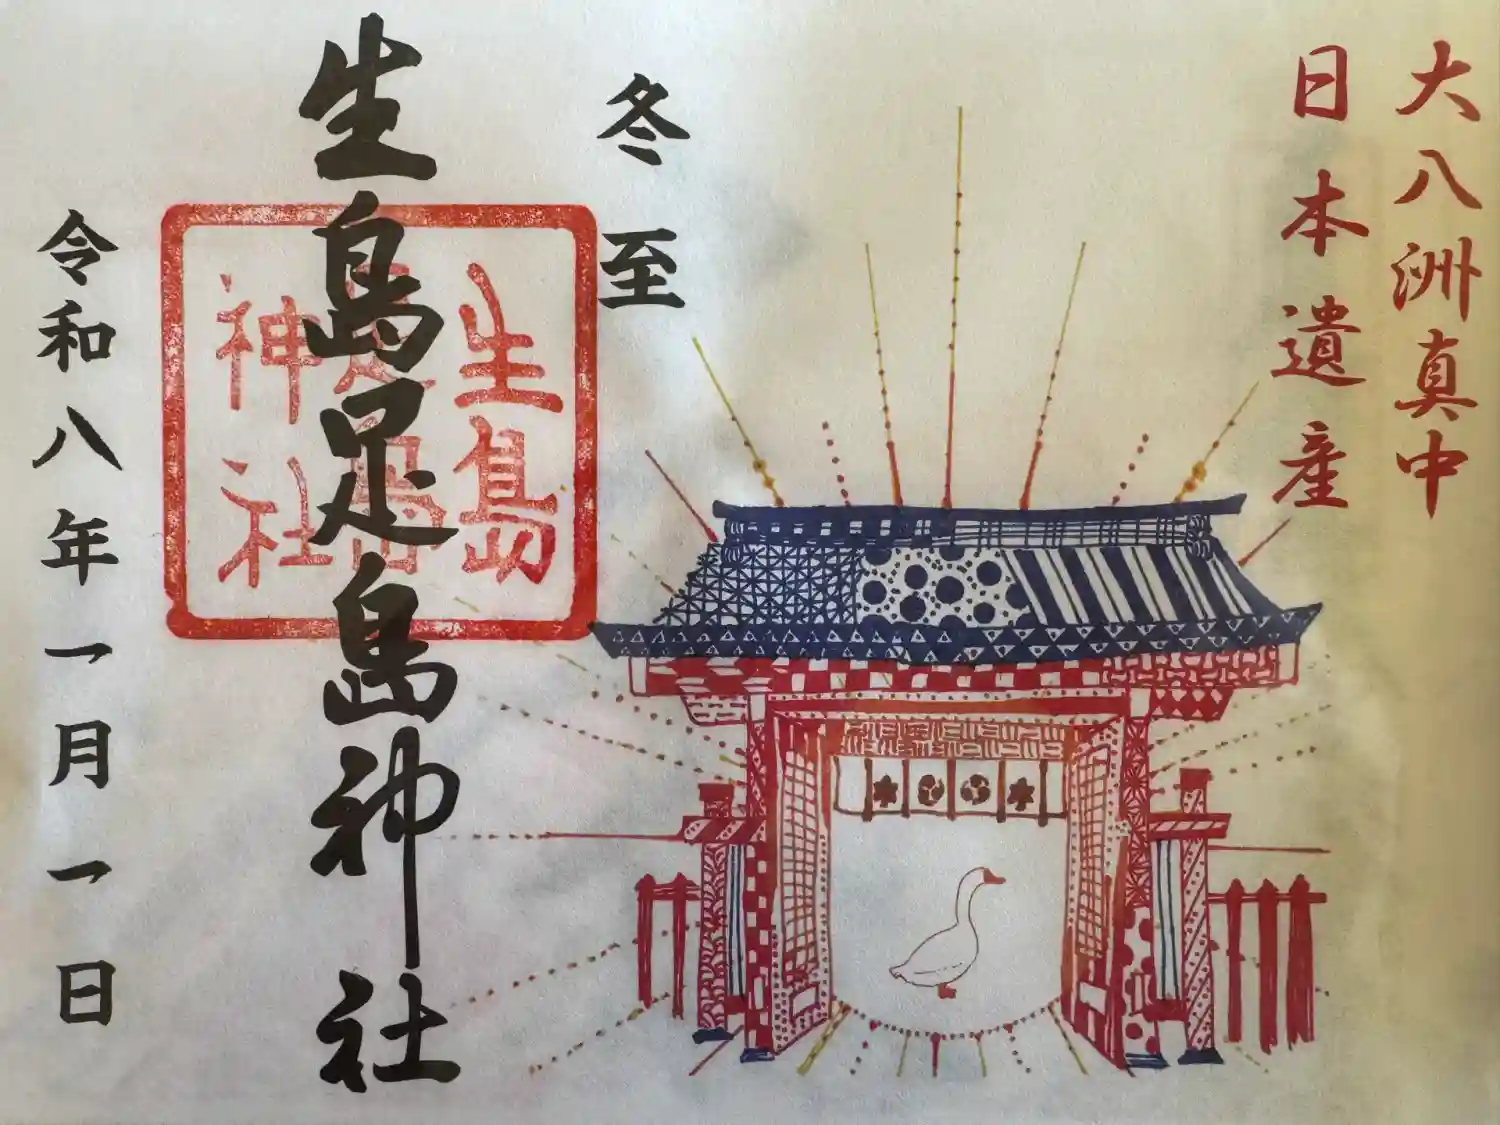 大八洲真中
日本遺産
冬至
生島足島神社
生島
足島
神社
令和八年一月一日